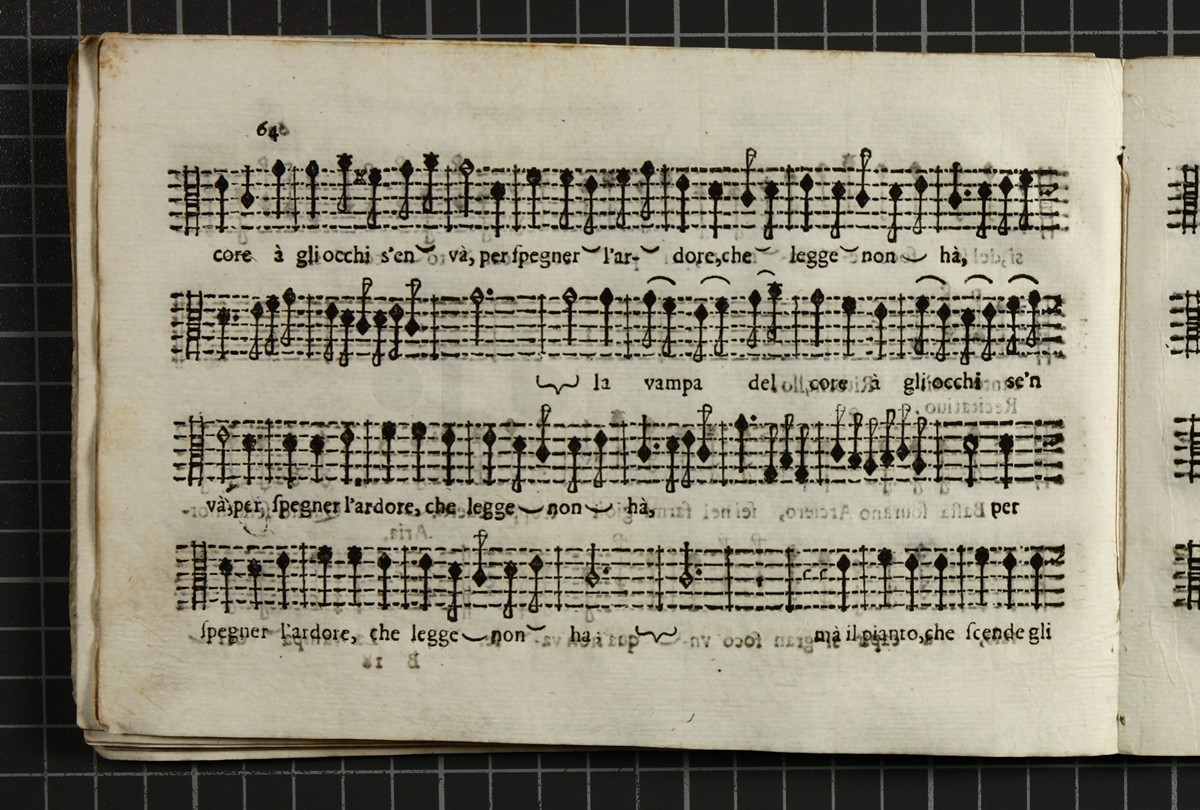 64
core à gli occhi s'en và, per ſpegner l'ar- dore, che legge non hà,
la vampa del core à gli occhi se'n
và, per ſpegner l'ardore, che legge non hà, per
ſpegner l'ardore, che legge non ha; mà il pianto, che ſcende gli